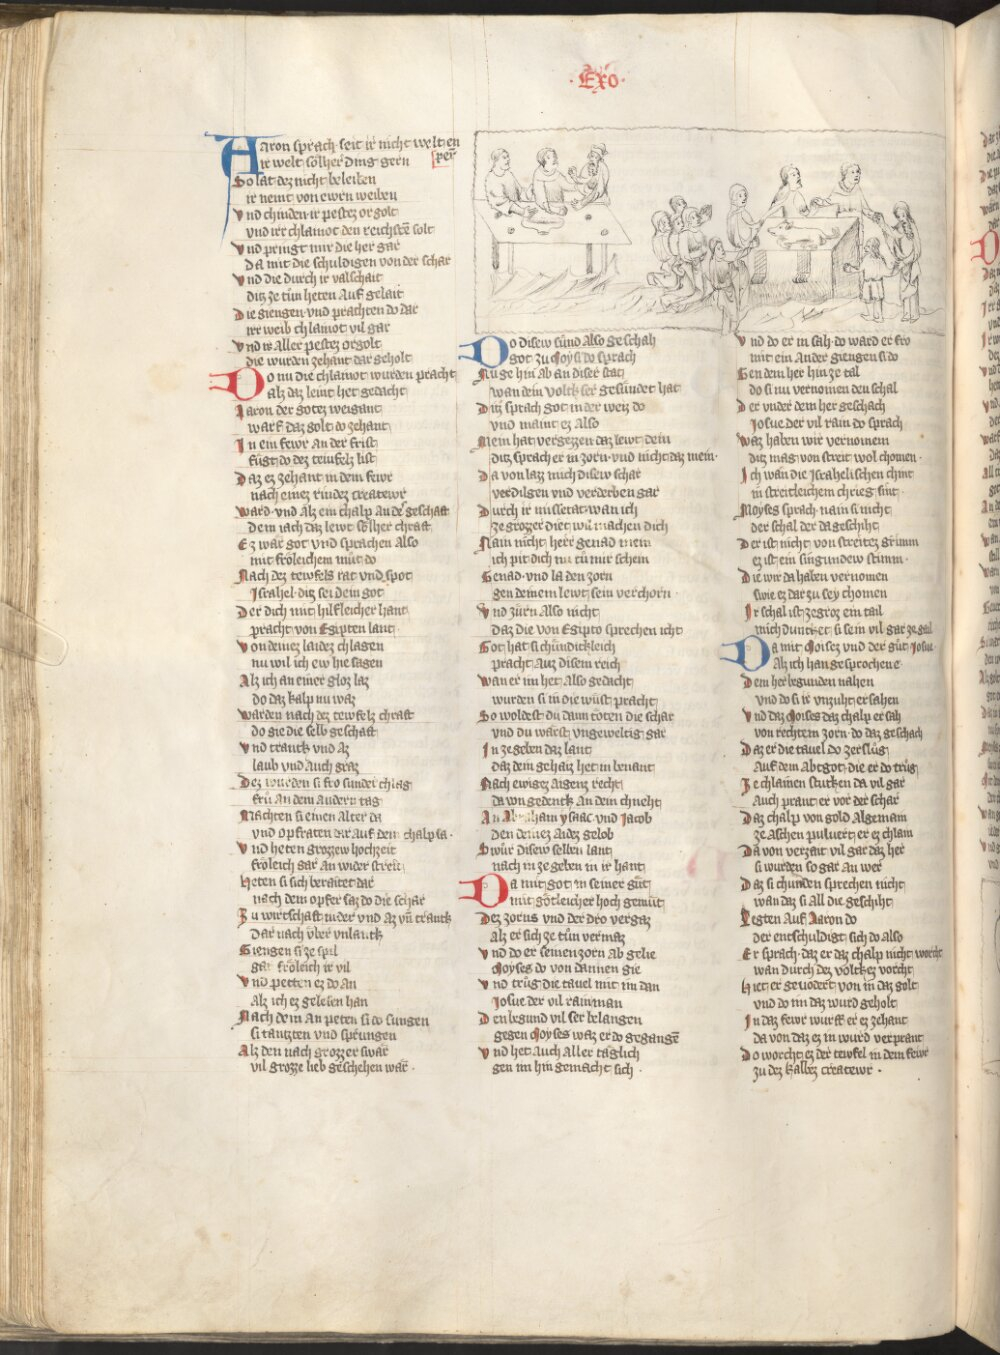 · Exo ·
Aaron sprach seit ir nicht welt en
ir welt sölher ding gern
pern
So lat dez nicht beleiben
ir nemt von ewrn weiben
Vnd chinden ir pestez orgolt
vnd irr chlainot den reichsten solt
Vnd pringt mir die her gar
Da mit die schuldigen von der schar
Vnd die durch ir valschait
ditz ze tün heten auf gelait
Die giengen vnd prachten do dar
irr weib chlainot vil gar
Vnd ir aller pestez orgolt
die wurden zehant dar geholt
Do nu die chlainot wurden pracht
alz daz leint het gedacht
Aaron der gotez weigant
warf daz golt do zehant
In ein fewr an der frist
fügt do dez teufelz list
Daz ez zehant in dem fewr
nach einez rindez createwr
Ward vnd alz ein chalp an der geschaft
Dem iach daz lewt sölher chraft
Ez wär got vnd sprachen also
mit frölichem müt do
Nach dez tewfels rat vnd spot
Israhel ditz sei dein got
Der dich mit hilfleicher hant
pracht von Egipten lant
Von deinez laidez chlagen
nu wil ich ew hie sagen
Alz ich an einer gloz laz
do daz kalp nu waz
Warden nach dez tewfelz chraft
do gie die selb geschaft
Vnd tranck vnd az
laub vnd auch graz
Dez wurden si fro sunder chlag
frü an dem andern tag
Machten si einen alter da
vnd opfraten dar auf dem chalp sa ·
Vnd heten grozzew hochzeit
frölich gar an wider streit
Heten si sich beraitet dar
nach dem opfer saz do die schar
Zu wirtschaft nider vnd az vnd tranck
Dar nach über vnlanck
Giengen si ze spil
gar frölich ir vil
Vnd petten ez do an
Alz ich ez gelesen han
Nach dem an peten si do sungen
si tantzten vnd sprungen
Alz den nach grozzer swär
vil grozze lieb geschehen wär ·
Do disew sünd also geschah
got zu Moysi do sprach
Nu ge hin ab an diser stat
wan dein volck ser gesündet hat
Ditz sprach got in der weiz do
vnd maint ez also
Mein hat vergezzen daz lewt dein
ditz sprach er in zorn vnd nicht daz mein ·
Da von laz mich disew schar
verdilgen vnd verderben gar
Durch ir missetat wan ich
ze grozer diet wil machen dich
Nain nicht herr genad mein
ich pit dich nu tü mir schein
Genad vnd la den zorn
gen deinem lewt sein verchorn ·
Vnd zürn also nicht
daz die von Egipto sprechen icht
Got hat si chündickleich
pracht auz disem reich
Wan er im het also gedacht
wurden si in die wüst pracht
So woldest du dann töten die schar
vnd du wärst vngeweltig gar
In ze geben daz lant
daz dem gehaiz het in benant
Nach ewigez aigenz recht
da von gedenck an dein chnecht
An Abraham ysaac vnd Jacob
den deinez aidez gelob
Swür disew selben lant
nach in ze geben in ir hant
Da mit got in seiner güt
mit götleicher hoch gemüt
Dez zorns vnd der dro vergaz
alz er sich ze tün vermaz
Vnd do er seinen zorn ab gelie
Moyses do von dannen gie
Vnd trüg die tauel mit im dan
Josue der vil rain man
Den begund vil ser belangen
gegen Moyses waz er do gegangen
Vnd het auch aller täglich
gen im hin gemacht sich ·
Vnd do er in sah do ward er fro
mit ein ander giengen si do
Gen dem her hin ze tal
do si nu vernomen den schal
Der vnder dem her geschach
Josue der vil rain do sprach
Waz haben wir vernomen
ditz mag von streit wol chomen ·
Ich wän die Israhelischen chint
in streitleichem chrieg sint
Moyses sprach nain si nicht
der schal der da geschiht
Der ist nicht von streitez grimm
ez ist ein singundew stimm ·
Die wir da haben vernomen
swie ez dar zu sey chomen
Ir schal ist ze groz ein tail
mich duncket si sein vil gar ze gail
Da mit Moises vnd der güt Josue
Alz ich han gesprochen e
Dem her begunden nahen
vnd do si ir vnzuht ersahen
Vnd daz Moises daz chalp ersah
von rechtem zorn do daz geschach
Daz er die tauel do zerslüg
Auf dem abtgot die er do trüg
Ze chlainen stucken da vil gar
auch prant er vor der schar
Daz chalp von gold algemain
ze aschen puluert er ez chlain
Da von verzait vil gar daz her
si wurden so gar an wer
Daz si chunden sprechen nicht
wan daz si all die geschiht
Legten auf Aaron do
der entschuldigt sich do also
Er sprach daz er daz chalp nicht worcht
wan durch dez volckez vorcht
Hiet er geuodert von in daz golt
vnd do im daz wurd geholt
In daz fewr wurff er ez zehant
da von daz ez in wurd verprant
Do worcht ez der tewfel in dem fewr
zu dez kalbez createwr ·